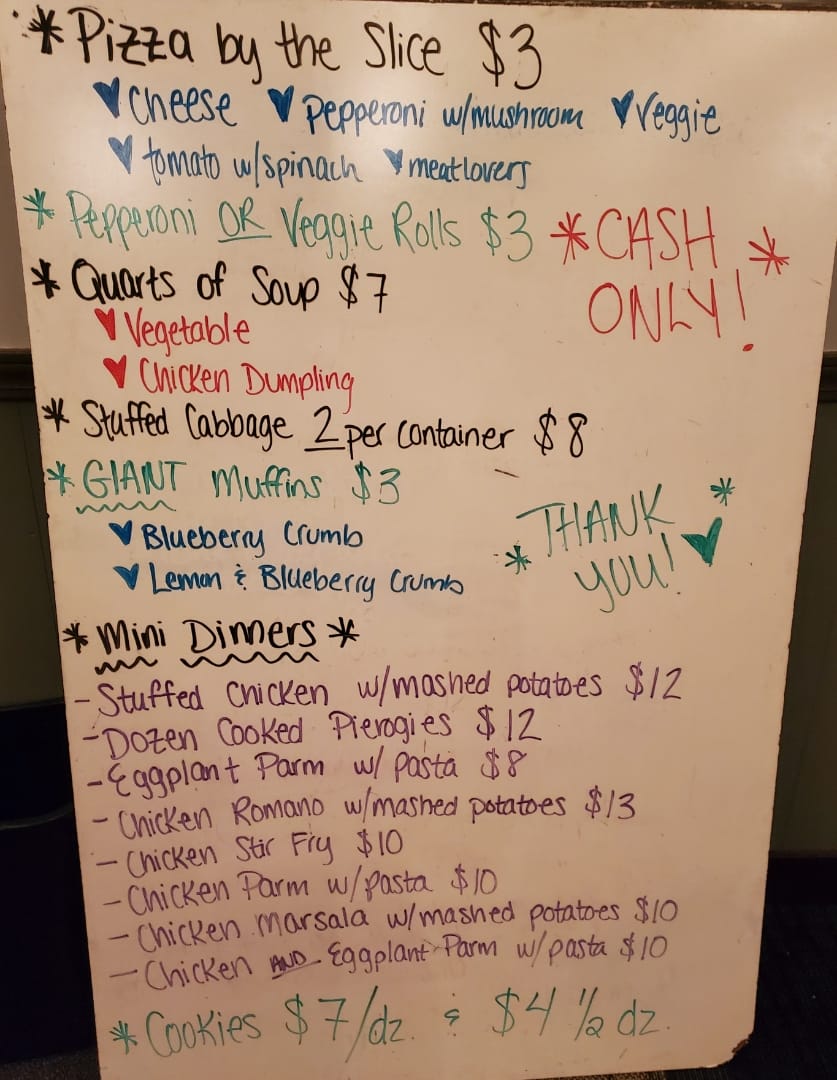 * Pizza by the Slice $3
♥ Cheese ♥ Pepperoni w/mushroom ♥ Veggie
♥ tomato w/spinach ♥ meatlovers
* Pepperoni OR Veggie Rolls $3
* CASH *
ONLY!
* Quarts of Soup $7
♥ Vegetable
♥ Chicken Dumpling
* Stuffed Cabbage 2 per container $8
* GIANT Muffins $3
♥ Blueberry Crumb
♥ Lemon & Blueberry Crumb
* THANK *
YOU! ♥
* Mini Dinners *
- Stuffed Chicken w/mashed potatoes $12
- Dozen Cooked Pierogies $12
- Eggplant Parm w/ pasta $8
- Chicken Romano w/mashed potatoes $13
- Chicken Stir Fry $10
- Chicken Parm w/pasta $10
- Chicken marsala w/mashed potatoes $10
- Chicken AND Eggplant Parm w/pasta $10
* Cookies $7/dz. & $4 ½ dz.